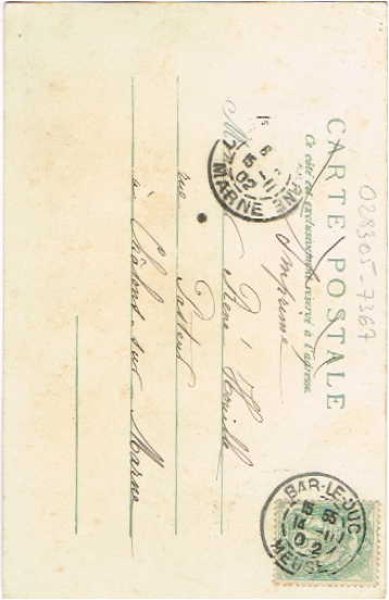 CARTE POSTALE
Ce côté est exclusivement réservé à l'adresse.
028305-7367
Imprimé
M René
rue Pasteur
à Châlons-sur-Marne
MARNE
15
02
BAR-LE-DUC
15 55
14 - 11
02
MEUSE